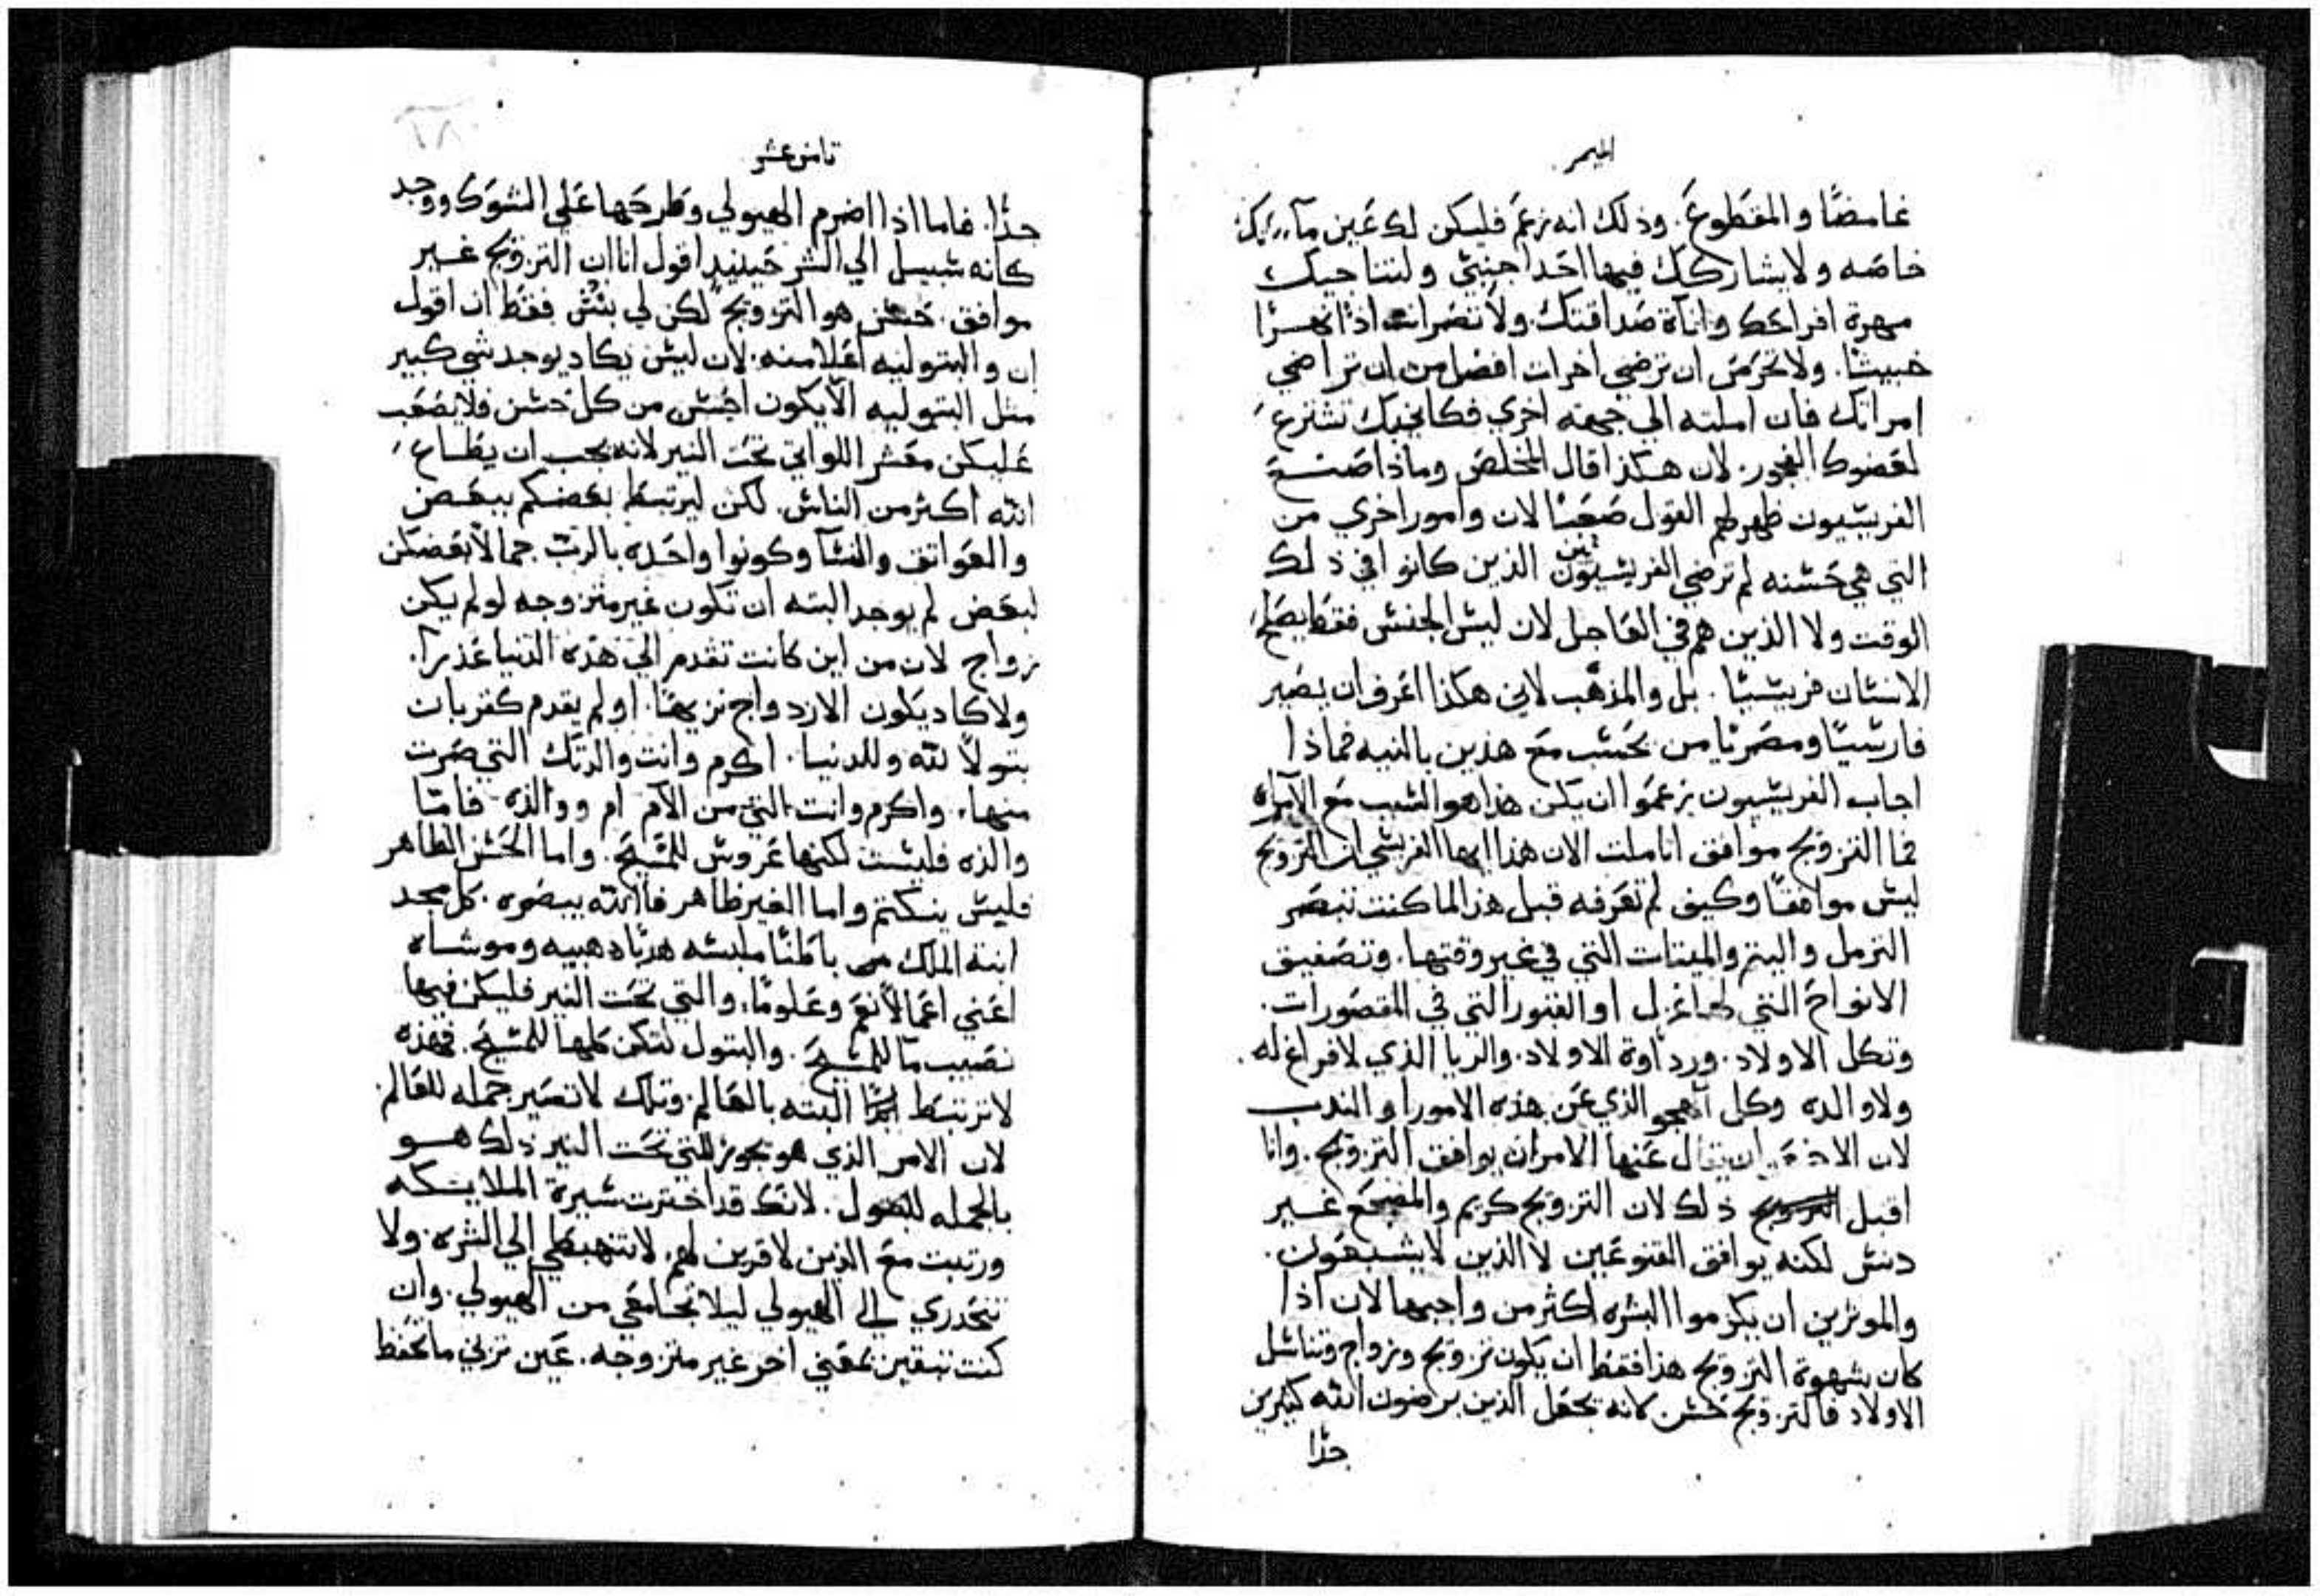 الميمر
غامضًا والمقطوع. وذلك انه زعم فليكن لك عين مآءيك
خاصه ولا يشاركك فيها احدا جنبيّ ولتناجيك
مهرة افراحك واناآة صداقتك ولا تصرانت اذا نهرًا
خبيثًا. ولا تحرص ان ترضي اخرات افضل من ان تراضي
امراتك فان املته الي جهته اخري فكانك تشترع
لعضوك الفجور. لان هكذا قال المخلص وماذا صنع
الفريسيون ظهر لهم القول صعبًا لان وامور اخري من
التي هي حسنه لم ترضي الفريسيون الذين كانوا في ذلك
الوقت ولا الذين هم في العاجل لان ليس الجنس فقط يصلح
الانسان فريسيًا. بل والمذهب لاني هكذا اعرف ان يصير
فارسيًا ومصريًا من يحسب مع هذين بالنيه فماذا
اجاب الفريسيون زعموا ان يكن هذا هو السبب مع الامراه
فما التزويج موافق اتاملت الان هذا ايها الفريسي ان التزويج
ليس موافقًا وكيف لم تعرفه قبل هذا لما كنت تبصر
الترمل واليتم والميتات التي في غير وقتها. وتصفيق
الانواح التي او القبور التي في المقصورات.
وتكل الاولاد. ورداوة الاولاد. والربا الذي لا فراغ له.
ولا والده وكل اهجو الذي عن هذه الامور او الندب
لان ان يقال عنها الامران يوافق التزويج. وانا
اقبل ذلك لان التزويج كريم والمضجع غير
دنس لكنه يوافق القنوعين لا الذين لا يشبعون.
والموثرين ان يكرموا البشره اكثر من واجبها لان اذا
كان بشهوة التزويج هذا فقط ان يكون تزويج وزواج وتناسل
الاولاد فالتزويج حسن كانه يجعل الذين يرضون الله كثيرين
جدًا
ثامن عشر
جدًا. فاما اذا اضرم الهيولي وطرحها علي الشوك ووجد
كانه سبيل الي الشر حينيذٍ اقول انا ان التزويج غير
موافق. حسن هو التزويج لكن لي بيس فقط ان اقول
ان والبتوليه اعلا منه. لان ليس يكاد يوجد شي كبير
مثل البتوليه الا يكون احسن من كل حسن فلا يصعب
عليكن معشر اللواتي تحت النير لانه يجب ان يطاع
الله اكثر من الناس. لكن ليرتبط بعضكم ببعض
والعواتق والنسآ وكونوا واحده بالربّ جمالًا بعضكن
لبعض لم يوجد البته ان تكون غير متزوجه لو لم يكن
زواج لان من اين كانت تقدم الي هذه الدنيا عذرا.
ولا كاد يكون الازدواج نزيهًا. او لم يقدم كقربات
بتولًا لله وللدنيا. اكرم وانت والدتك التي صرت
منها. واكرم وانت التي من الام ام ووالده. فامّا
والده فليست لكنها عروس للمسيح. واما الحسن الظاهر
فليس ينكتم واما الغير ظاهر فالله يبصره. كل مجد
ابنة الملك من باطنًا ملبسه هدبًا ذهبيه وموشاه
اعني اعمالًا نعم وعلومًا. والتي تحت النير فليكن فيها
نصيب ما للمسيح. والبتول لتكن كلها للمسيح. فهذه
لا ترتبط البته بالعالم. وتلك لا تصير جمله للعالم.
لان الامر الذي هو تجويز للتي تحت النير ذلك هو
بالجمله للبتول. لانك قد اخترت سيرة الملايكه
ورتبت مع الذين لا قرين لهم. لا تنهبطي الي الشره. ولا
تنحدري الي الهيولي ليلا تجامعي من الهيولي. وان
كنت تبقين بمعني اخر غير متزوجه. عين تزني ما تحفظ